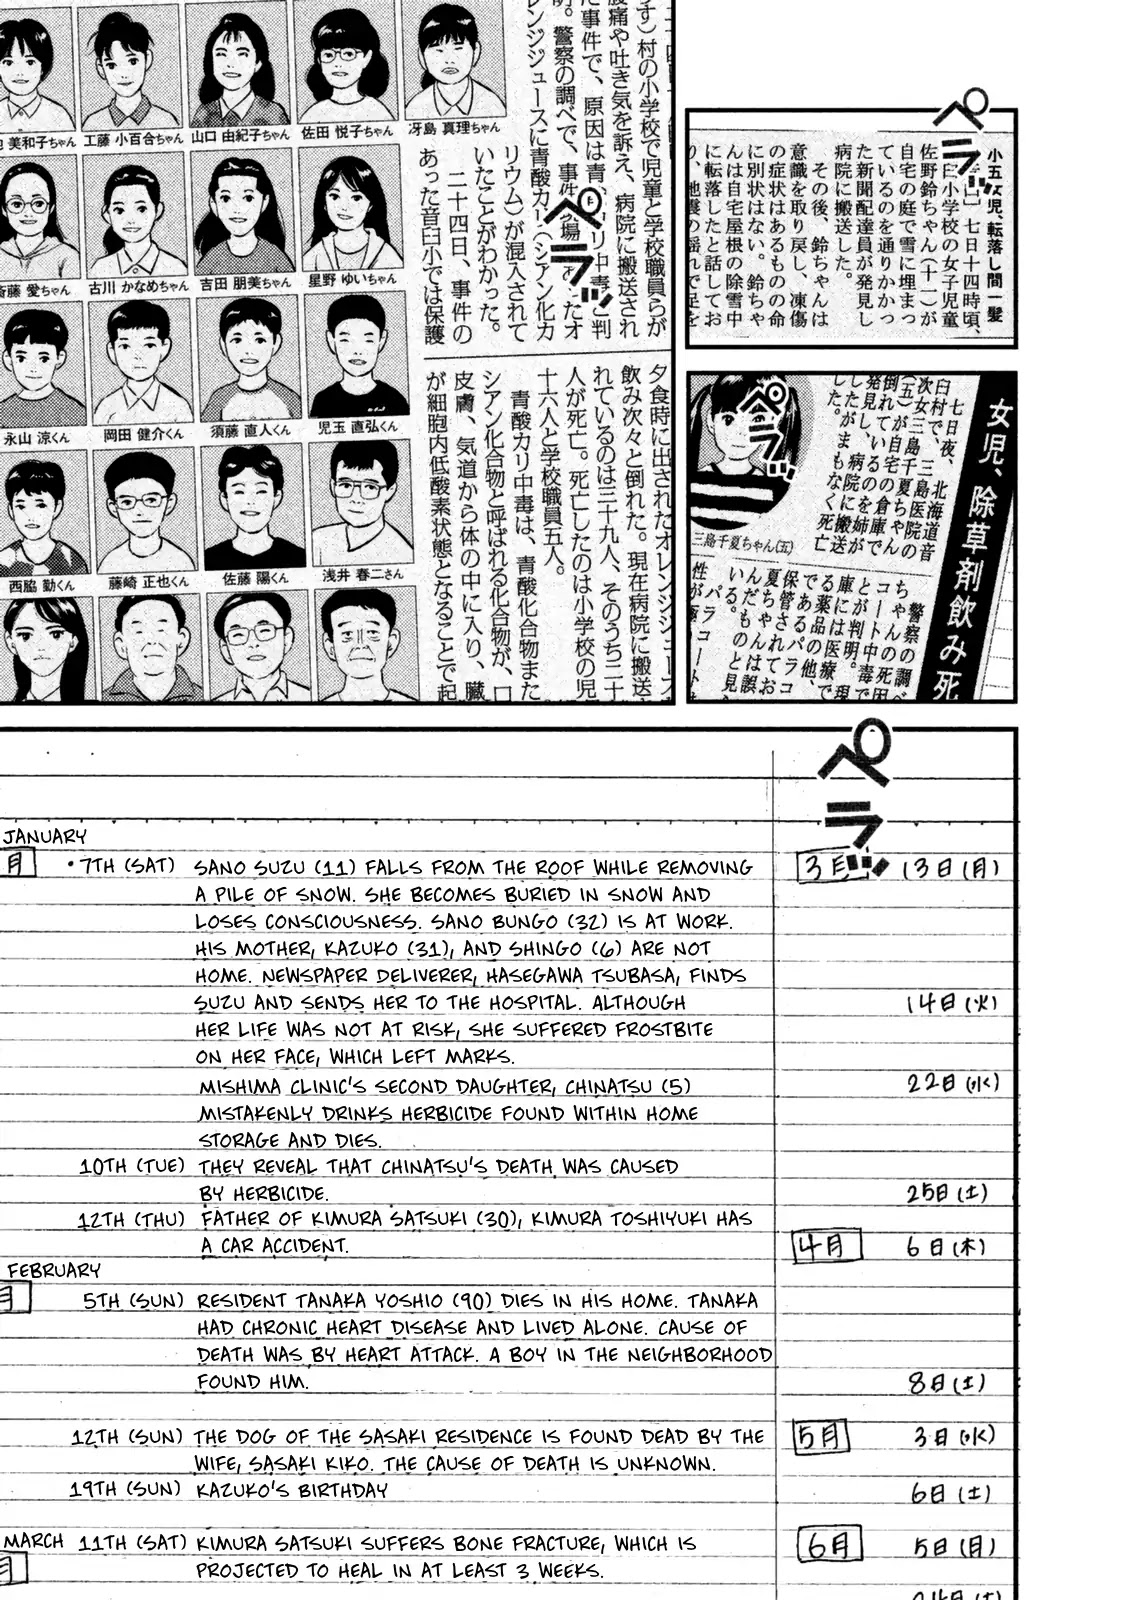 ペラッ
小五女児、転落し間一髪
七日十四時頃、
臼小学校の女子児童
佐野鈴ちゃん(十一)が
自宅の庭で雪に埋まっ
ているのを通りかかっ
た新聞配達員が発見し
病院に搬送した。
その後、鈴ちゃんは
意識を取り戻し、凍傷
の症状はあるものの命
に別状はない。鈴ちゃ
んは自宅屋根の除雪中
に転落したと話してお
り、地震の揺れで足を
美和子ちゃん
工藤 小百合ちゃん
山口 由紀子ちゃん
佐田 悦子ちゃん
冴島 真理ちゃん
斎藤 愛ちゃん
古川 かなめちゃん
吉田 朋美ちゃん
星野 ゆいちゃん
永山 涼くん
岡田 健介くん
須藤 直人くん
児玉 直弘くん
西脇 勤くん
藤崎 正也くん
佐藤 陽くん
浅井 春二さん
ペラッ
す)村の小学校で児童と学校職員らが
腹痛や吐き気を訴え、病院に搬送され
た事件で、原因は青
明。警察の調べで、事件
レンジジュースに青酸カリ(シアン化カ
リウム)が混入されて
いたことがわかった。
二十四日、事件の
あった音臼小では保護
夕食時に出されたオレンジジュースを
飲み次々と倒れた。現在病院に搬送
れているのは三十九人、そのうち二十
人が死亡。死亡したのは小学校の児
十六人と学校職員五人。
青酸カリ中毒は、青酸化合物また
シアン化合物と呼ばれる化合物が、口
皮膚、気道から体の中に入り、臓
が細胞内低酸素状態となることで起
ペラッ
女児、除草剤飲み死
七日夜、北海道音
臼村で、三島医院の
次女三島千夏ちゃん
(五)が自宅の倉庫で
倒れているのを姉が
発見し、病院に搬送
したがまもなく死亡
した。
三島千夏ちゃん(五)
警察の調べ
ちゃんの死因
コート中毒で
とが判明。現
庫には医療で
る薬品の他、
であるパラコ
保管されてお
夏ちゃんは誤
んだものと見
いる。
パラコート
性が
ペラッ
JANUARY
月
・7TH (SAT) SANO SUZU (11) FALLS FROM THE ROOF WHILE REMOVING
A PILE OF SNOW. SHE BECOMES BURIED IN SNOW AND
LOSES CONSCIOUSNESS. SANO BUNGO (32) IS AT WORK.
HIS MOTHER, KAZUKO (31), AND SHINGO (6) ARE NOT
HOME. NEWSPAPER DELIVERER, HASEGAWA TSUBASA, FINDS
SUZU AND SENDS HER TO THE HOSPITAL. ALTHOUGH
HER LIFE WAS NOT AT RISK, SHE SUFFERED FROSTBITE
ON HER FACE, WHICH LEFT MARKS.
MISHIMA CLINIC'S SECOND DAUGHTER, CHINATSU (5)
MISTAKENLY DRINKS HERBICIDE FOUND WITHIN HOME
STORAGE AND DIES.
10TH (TUE) THEY REVEAL THAT CHINATSU'S DEATH WAS CAUSED
BY HERBICIDE.
12TH (THU) FATHER OF KIMURA SATSUKI (30), KIMURA TOSHIYUKI HAS
A CAR ACCIDENT.
FEBRUARY
月
5TH (SUN) RESIDENT TANAKA YOSHIO (90) DIES IN HIS HOME. TANAKA
HAD CHRONIC HEART DISEASE AND LIVED ALONE. CAUSE OF
DEATH WAS BY HEART ATTACK. A BOY IN THE NEIGHBORHOOD
FOUND HIM.
12TH (SUN) THE DOG OF THE SASAKI RESIDENCE IS FOUND DEAD BY THE
WIFE, SASAKI KIKO. THE CAUSE OF DEATH IS UNKNOWN.
19TH (SUN) KAZUKO'S BIRTHDAY
MARCH 11TH (SAT) KIMURA SATSUKI SUFFERS BONE FRACTURE, WHICH IS
月
PROJECTED TO HEAL IN AT LEAST 3 WEEKS.
3月 13日(月)
14日(火)
22日(水)
25日(土)
4月 6日(木)
8日(土)
5月 3日(水)
6日(土)
6月 5日(月)